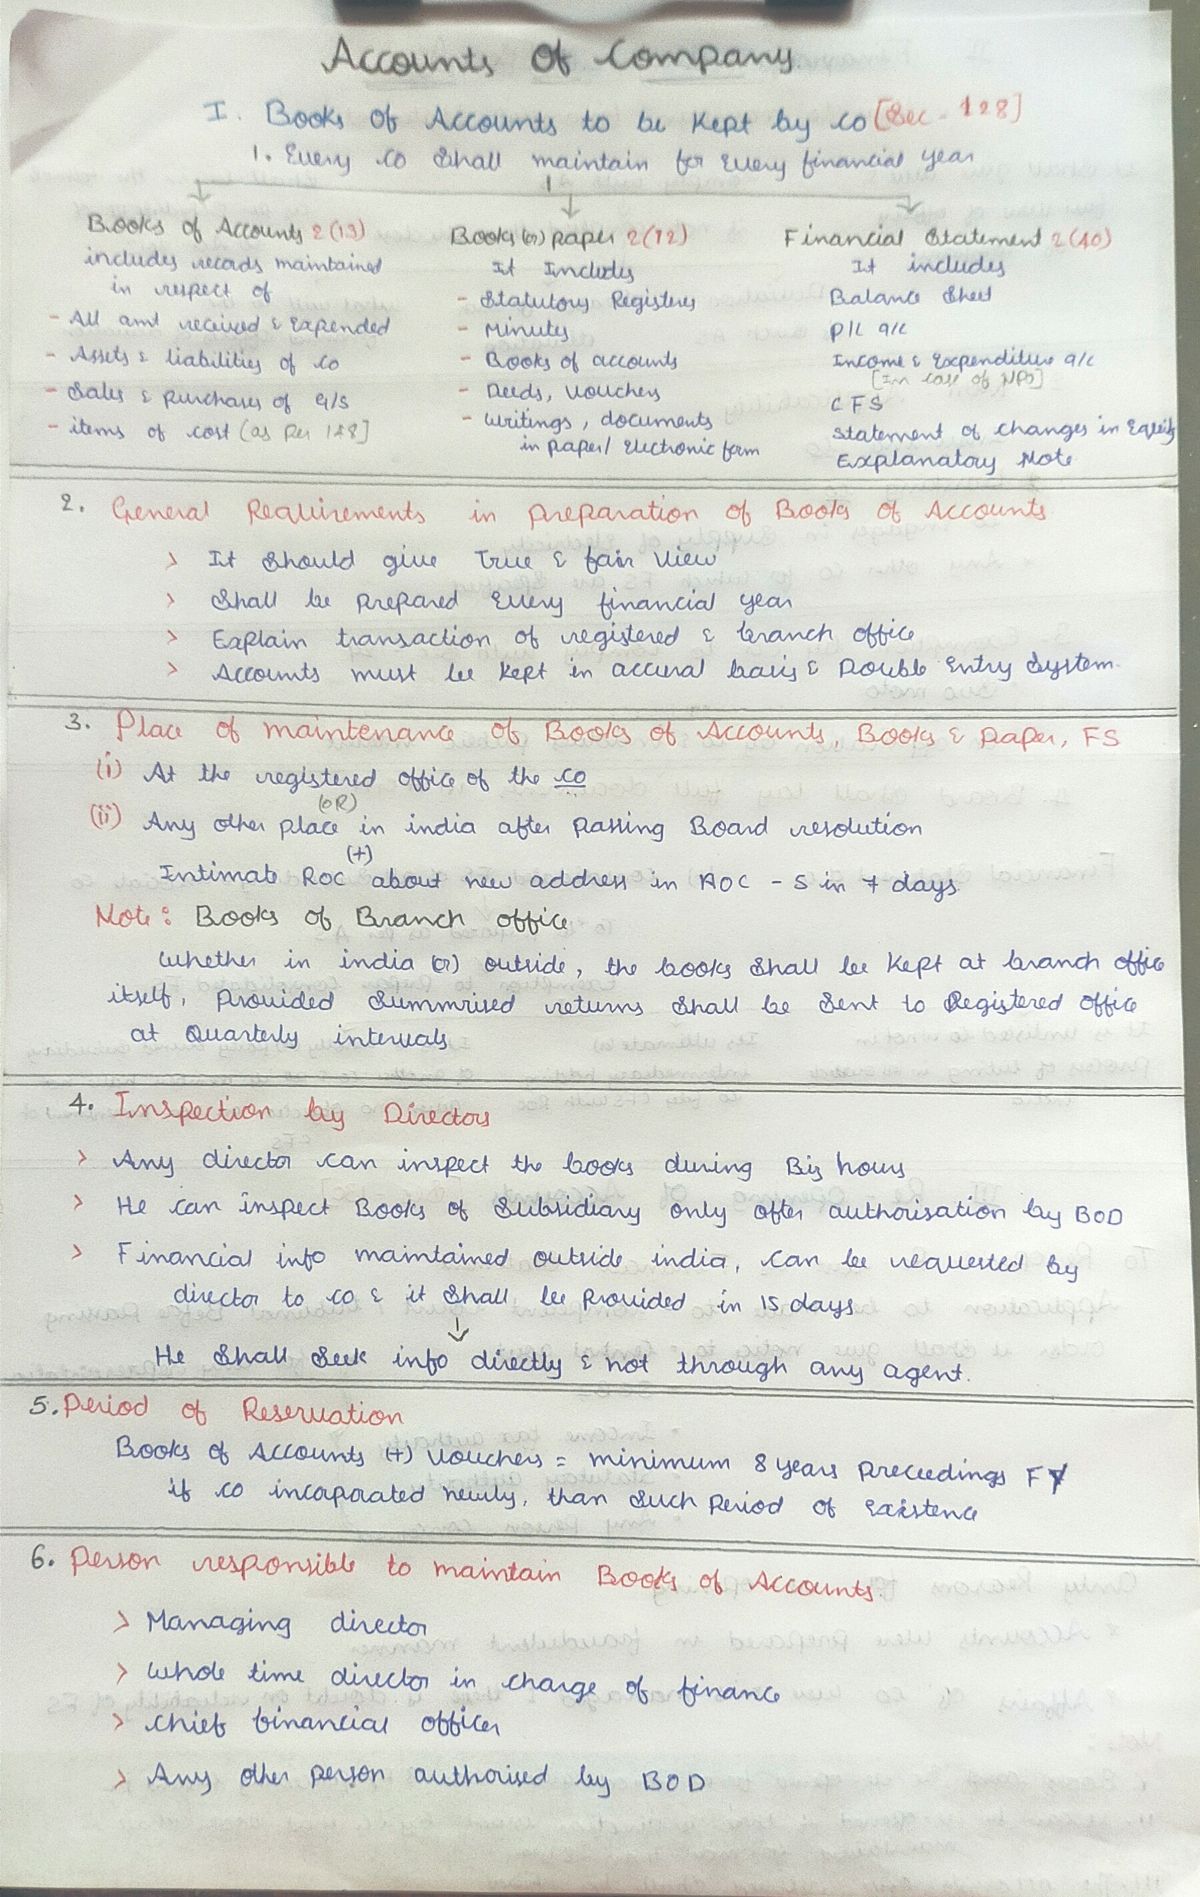 Accounts Of Company
I. Books Of Accounts to be Kept by co [Sec - 128]
1. Every co Shall maintain for Every financial year
Books of Accounts 2(13)
includes records maintained
in respect of
- All amt received & Expended
- Assets & liabilities of co
- Sales & purchases of G/S
- items of cost (as per 148]
Books (or) paper 2(12)
It Includes
- Statutory Registers
- Minutes
- Books of accounts
- Deeds, Vouchers
- Writings, documents
in paper/ Electronic form
Financial Statement 2(40)
It includes
Balance Sheet
P/L a/c
Income & Expenditure a/c
[In case of NPO]
CFS
Statement of changes in Equity
Explanatory Note
2. General Requirements in preparation of Books of Accounts
> It Should give True & fair View
> Shall be prepared Every financial year
> Explain transaction of registered & branch office
> Accounts must be kept in accural basis & Double Entry System.
3. Place of maintenance of Books of Accounts, Books & paper, FS
(i) At the registered office of the co
(OR)
(ii) Any other place in india after passing Board resolution
(+)
Intimate ROC about new address in AOC - 5 in 7 days
Note: Books of Branch office
Whether in india (or) outside, the books Shall be kept at branch office
itself, provided Summrised returns Shall be Sent to Registered office
at Quarterly intervals
4. Inspection by Directors
> Any director can inspect the books during Biz hours
> He can inspect Books of Subsidiary only after authorisation by BOD
> Financial info maintained outside india, can be requested by
director to co & it Shall be provided in 15 days
He Shall Seek info directly & not through any agent.
5. Period of Reservation
Books of Accounts (+) Vouchers = minimum 8 years preceedings FY
if co incorporated newly, than Such period of Existence
6. Person responsible to maintain Books of Accounts.
> Managing director
> Whole time director in charge of finance
> Chief financial officer
> Any other person authorised by BOD